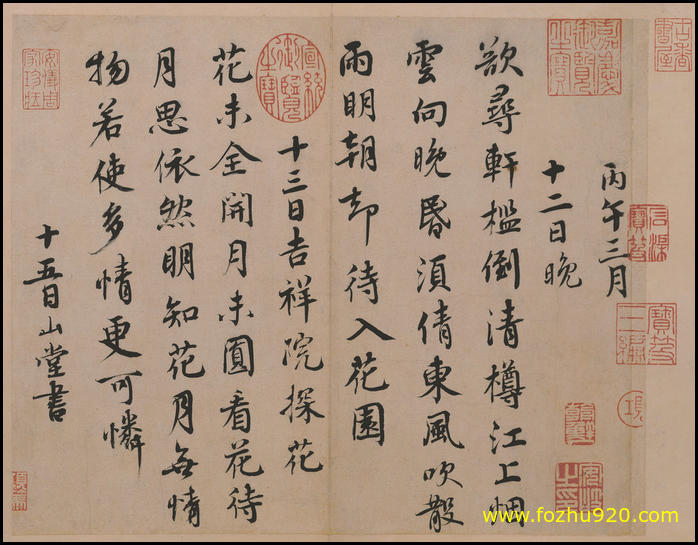 丙午三月
十二日晚
欲尋軒檻倒清樽江上烟
雲向晚昏須倩東風吹散
雨明朝却待入花園
十三日吉祥院探花
花未全開月未圓看花待
月思依然明知花月無情
物若使多情更可憐
十五日山堂書
嘉慶御覽之寶
宣統御覽之寶
安儀周家珍藏
www.fozhu920.com